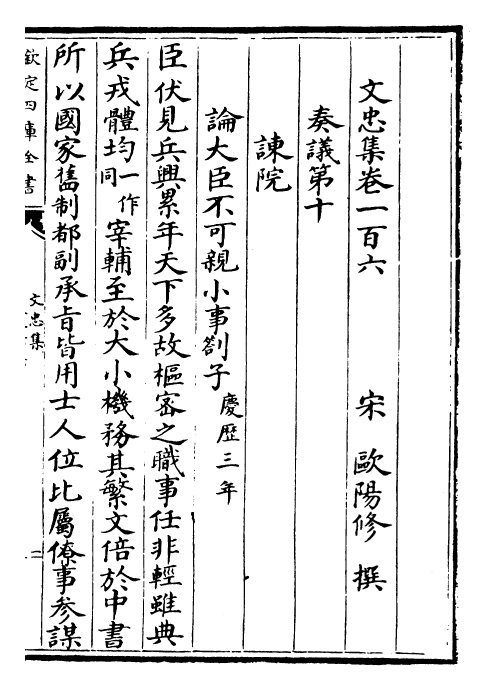 文忠集卷一百六 宋 歐陽修 撰
奏議第十
諫院
論大臣不可親小事劄子 慶歴三年
臣伏見兵興累年天下多故樞密之職事任非輕雖典
兵戎體均一作同宰輔至於大小機務其繁文倍於中書
所以國家舊制都副承旨皆用士人位比屬僚事參謀
欽定四庫全書
文忠集